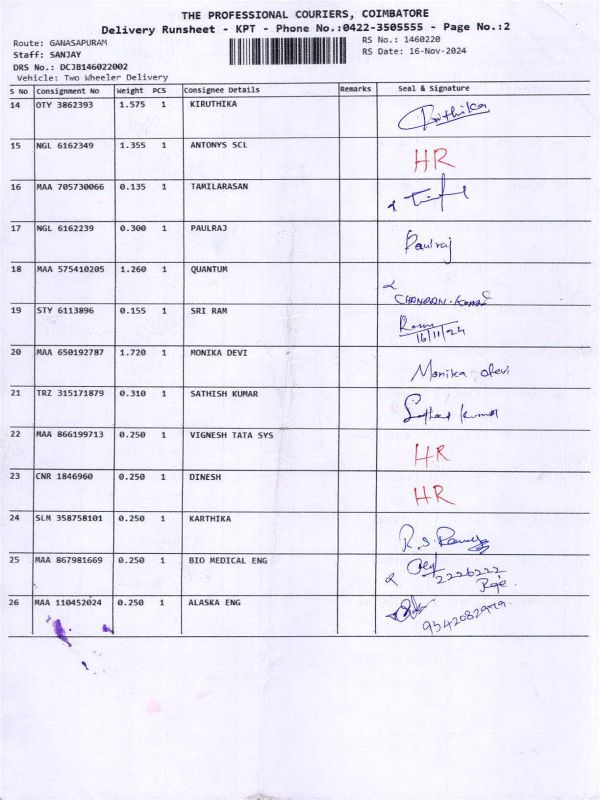 THE PROFESSIONAL COURIERS, COIMBATORE
Delivery Runsheet - KPT - Phone No.:0422-3505555 - Page No.:2
Route: GANASAPURAM RS No.: 1460220
Staff: SANJAY RS Date: 16-Nov-2024
DRS No.: DCJB146022002
Vehicle: Two Wheeler Delivery
S No Consignment No Weight PCS Consignee Details Remarks Seal & Signature
14 OTY 3862393 1.575 1 KIRUTHIKA
15 NGL 6162349 1.355 1 ANTONYS SCL HR
16 MAA 705730066 0.135 1 TAMILARASAN
17 NGL 6162239 0.300 1 PAULRAJ Paulraj
18 MAA 575410205 1.260 1 QUANTUM CHANDAN.Kumar
19 STY 6113896 0.155 1 SRI RAM
16/11/24
20 MAA 650192787 1.720 1 MONIKA DEVI Monika devi
21 TRZ 315171879 0.310 1 SATHISH KUMAR
22 MAA 866199713 0.250 1 VIGNESH TATA SYS HR
23 CNR 1846960 0.250 1 DINESH HR
24 SLM 358758101 0.250 1 KARTHIKA
25 MAA 867981669 0.250 1 BIO MEDICAL ENG
26 MAA 110452024 0.250 1 ALASKA ENG